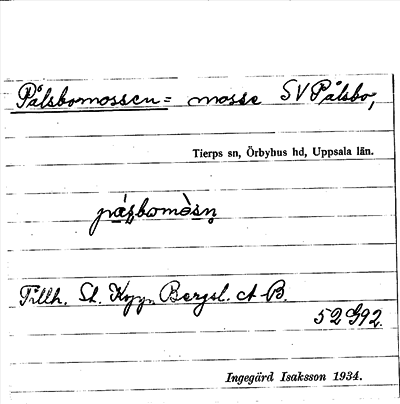 Pålsbomossen = mosse SV Pålsbo,
Tierps sn, Örbyhus hd, Uppsala län.
Tillh. St. Kopp. Bergsl. A-B.
52992.
Ingegärd Isaksson 1934.